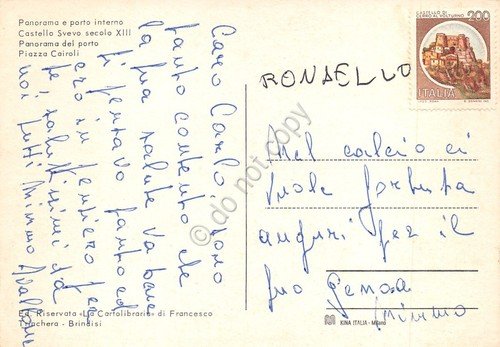 Panorama e porto interno
Castello Svevo secolo XIII
Panorama del porto
Piazza Cairoli
Caro Carlo sono
tanto contento che
la tua salute va bene
ti pensavo tanto ed
ero in pensiero per
te, salutissimi da
noi tutti Mimmo
CASTELLO DI
CERRO AL VOLTURNO
200
ITALIA
RONDELLO
Nel calcio ci
vuole fortuna
auguri per il
tuo Genoa
Mimmo
Ed. Riservata «La Cartolibraria» di Francesco
Brindisi
KINA ITALIA - Milano
© do not copy